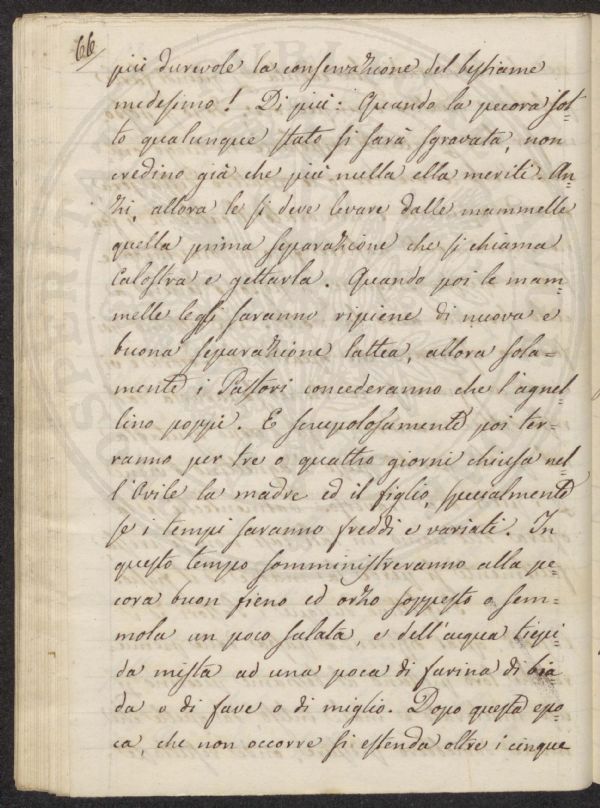 66
più durevole la conservazione del bestiame
medesimo! Di più: Quando la pecora sot=
to qualunque stato si sarà sgravata, non
credino già che più nulla ella meriti. An=
zi, allora le si deve levare dalle mammelle
quella prima separazione che si chiama
Calostra e gettarla. Quando poi le mam=
melle legli saranno ripiene di nuova e
buona separazione lattea, allora sola=
mente i Pastori concederanno che l'agnel=
lino poppi. E scrupolosamente poi ter=
ranno per tre o quattro giorni chiusa nel=
l'Ovile la madre ed il figlio, specialmente
se i tempi saranno freddi e variati. In
questo tempo somministreranno alla pe=
cora buon fieno ed orzo soppesto o sem=
mola un poco salata, e dell'acqua tiepi=
da mista ad una poca di farina di bia=
da o di fave o di miglio. Dopo questa epo=
ca, che non occorre si estenda oltre i cinque